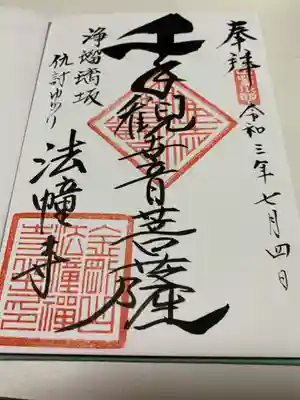 奉拝
令和三年七月四日
壬子観世音菩薩
浄瑠璃坂
仇討ゆかり
法幢寺